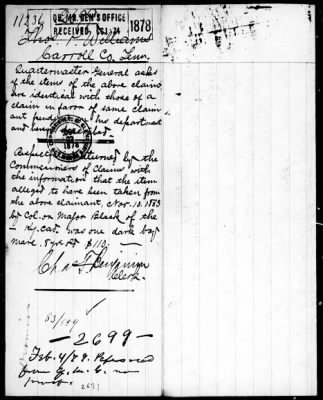 11236
QR. MR. GEN'S OFFICE
RECEIVED
1878
Thos. P. Williams
Carroll Co. Tenn.
Quartermaster General asks
if the items of the above claim
are identical with those of a
claim in favor of same claim
ant pending in his department
and hereto attached
1878
Respectfully returned by the
Commissioners of Claims with
the information that the item
alleged to have been taken from
the above claimant, Nov. 10. 1863
by Col. or Major Black of the
Ky. Cav. was one dark bay
mare. 5 yrs old $110
Chas F Benjamin
Clerk.
53/199
—2699—
Feb. 4/
from Q. M. G. no
2691